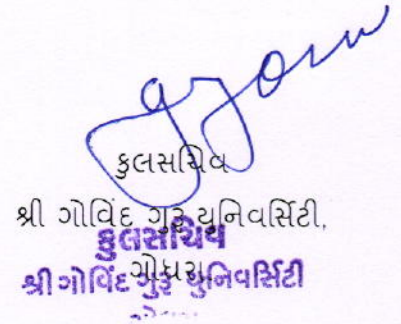 કુલસચિવ
શ્રી ગોવિંદ ગુરુ યુનિવર્સિટી,
કુલસચિવ
ગોધરા
શ્રી ગોવિંદ ગુરુ યુનિવર્સિટી